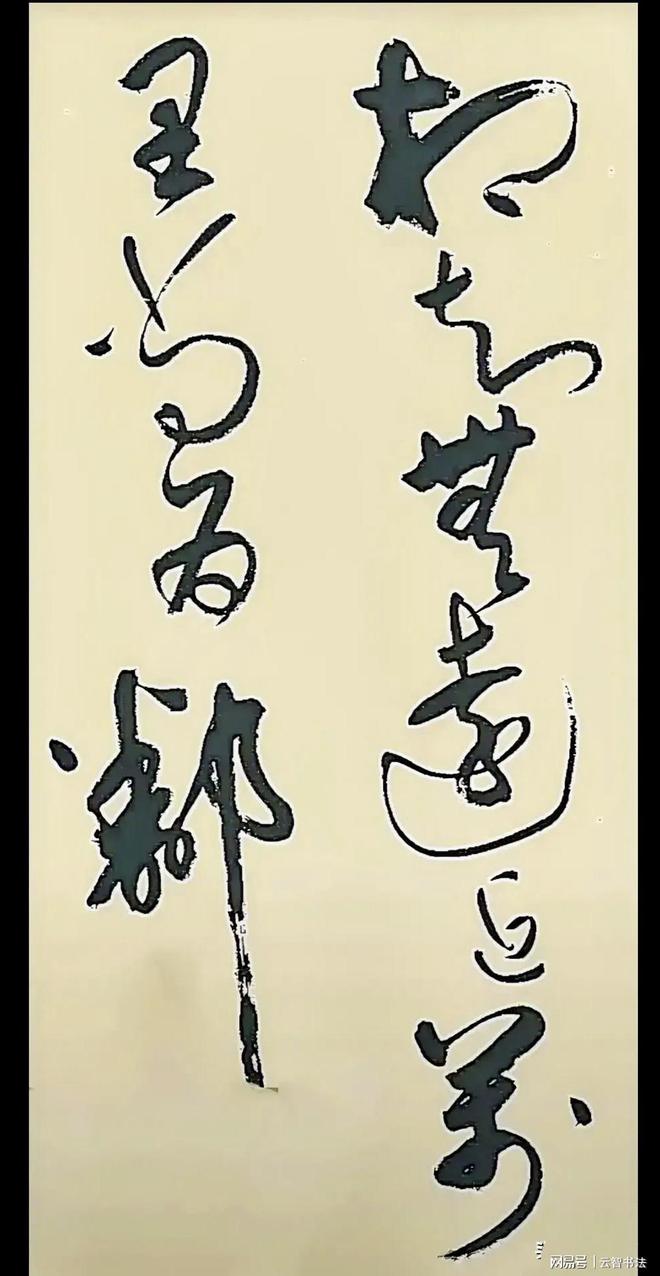 相知無遠近萬
里尚為鄰
网易号 | 云智书法